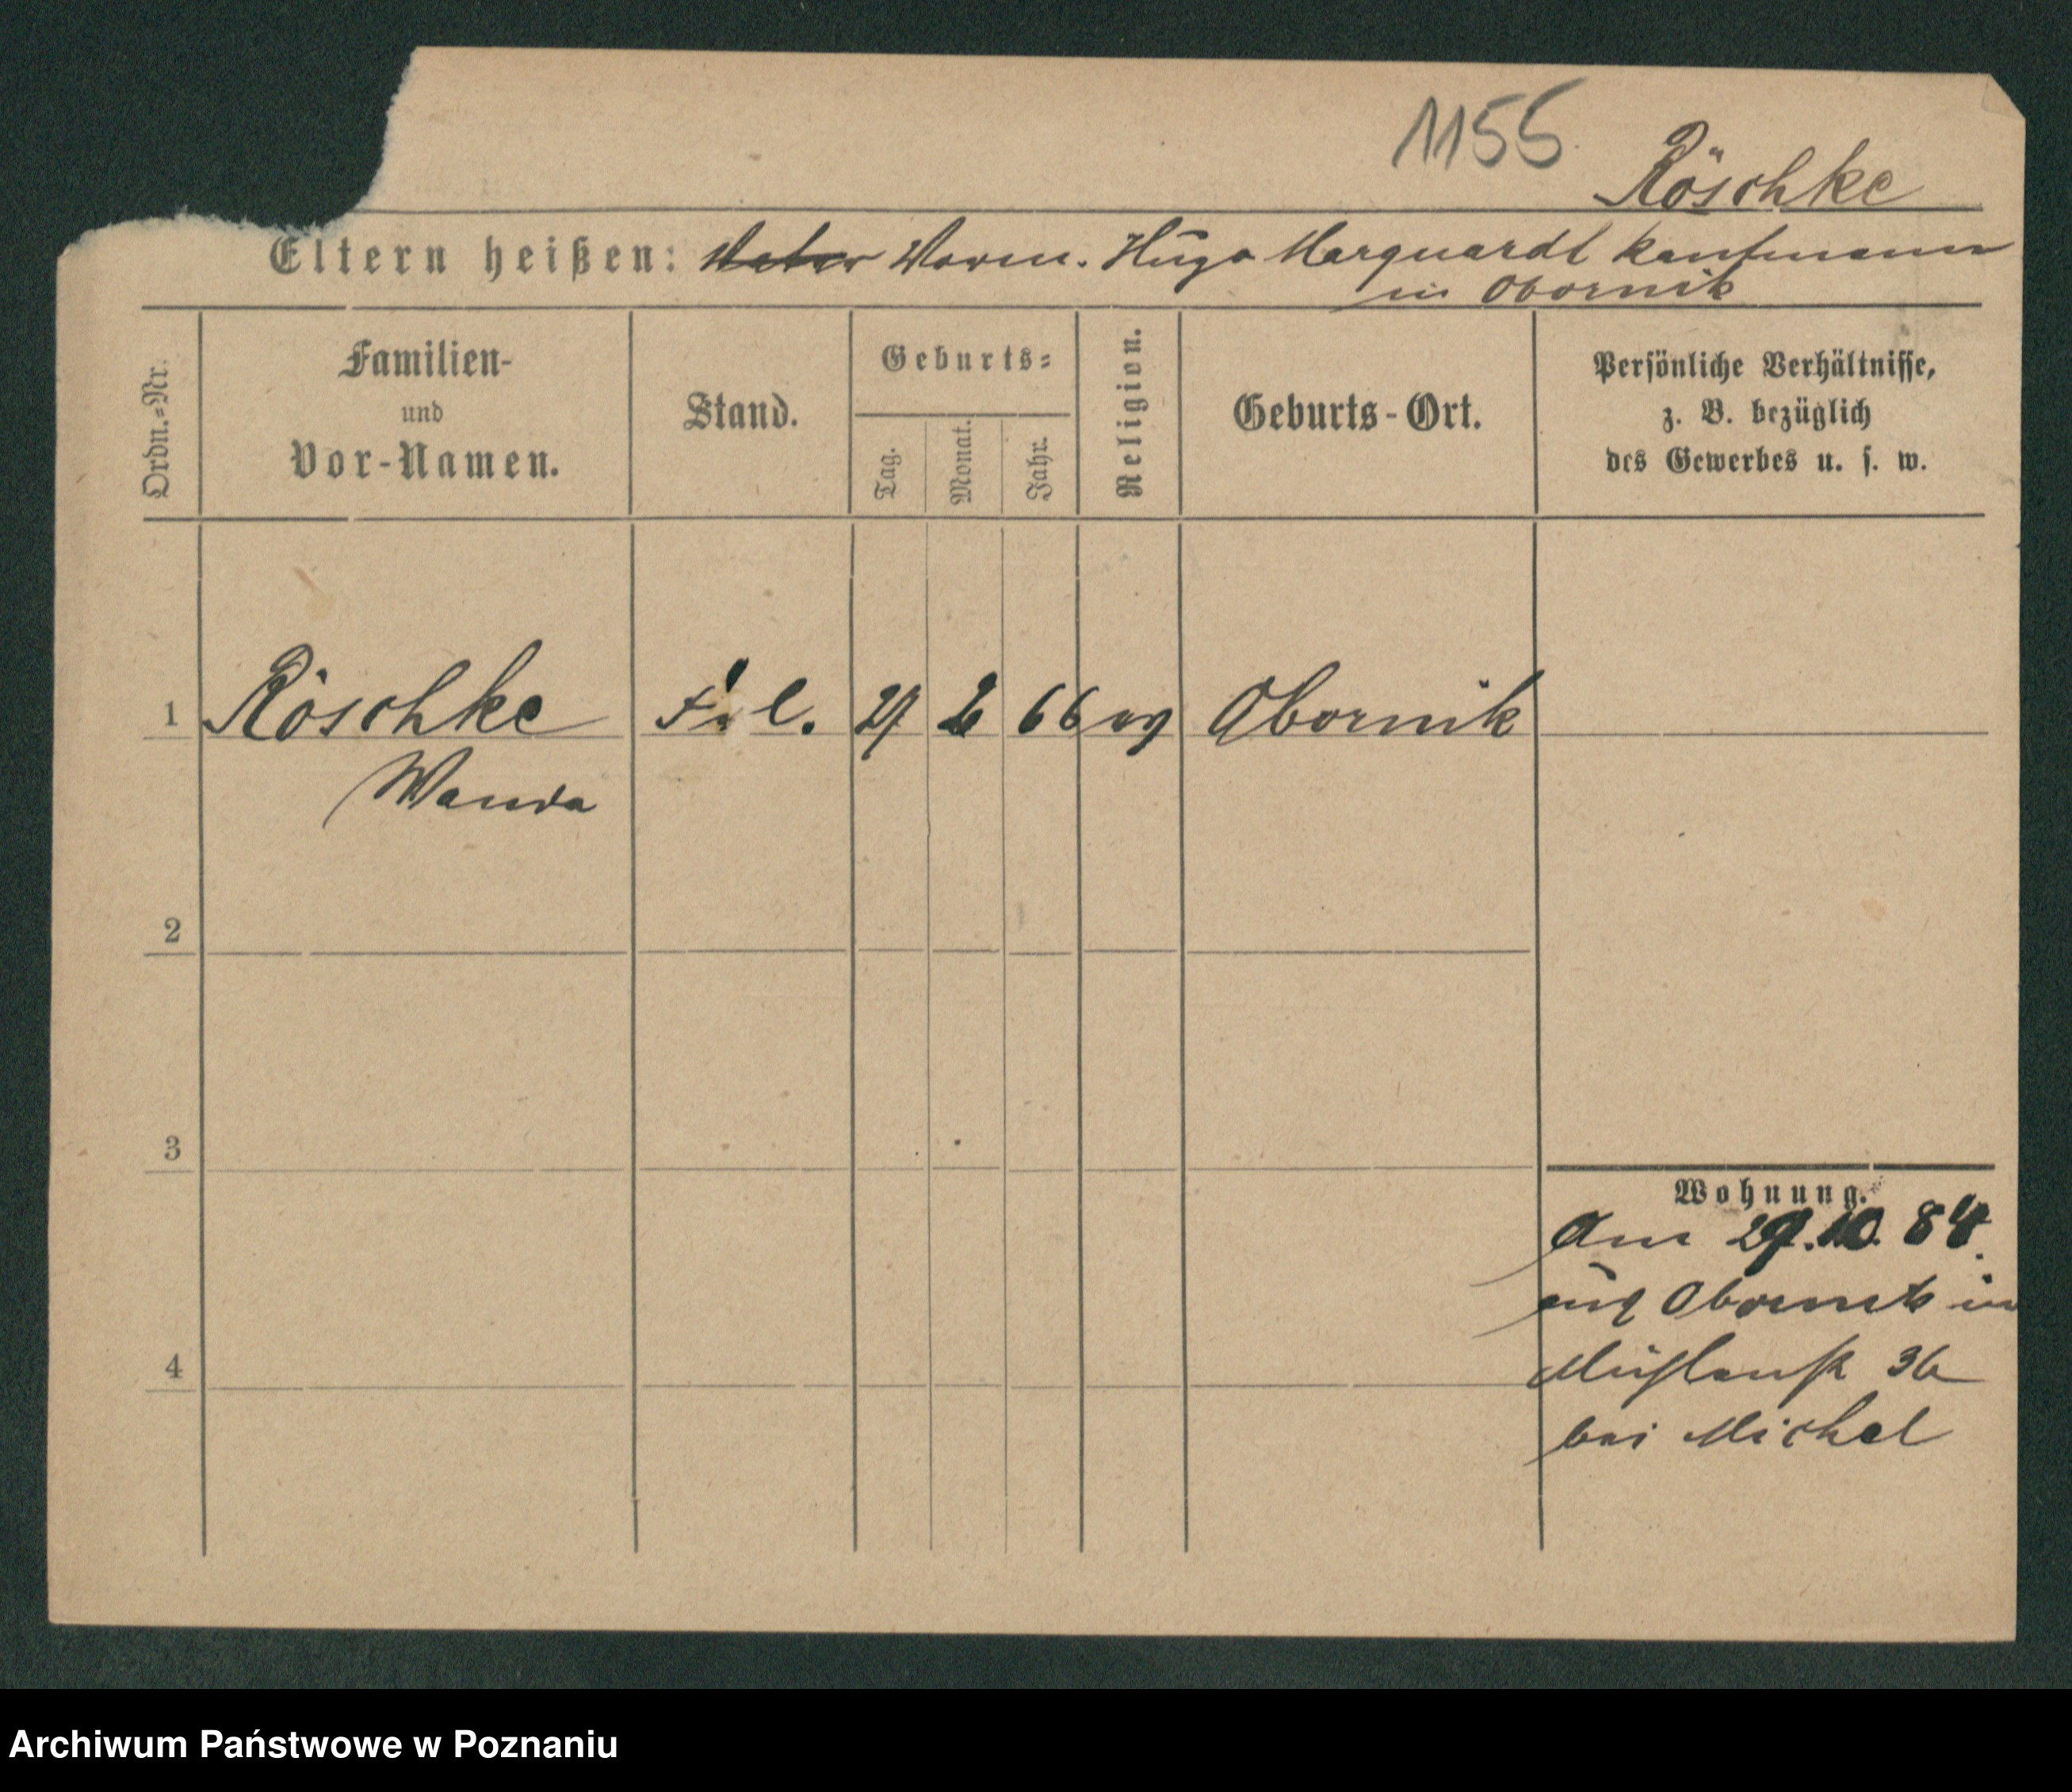 1155
Röschke
Eltern heißen: Vater Vorm. Hugo Marquardt Kaufmann
in Obornik
Ordn.-Nr.
Familien-
und
Vor-Namen.
Stand.
Geburts-
Tag.
Monat.
Jahr.
Religion.
Geburts-Ort.
Persönliche Verhältnisse,
z. B. bezüglich
des Gewerbes u. s. w.
1 Röschke 27 66 ev Obornik
Wanda
2
3
4
Wohnung.
Am 29.10.84.
aus Obornik in
36
bei Michel
Archiwum Państwowe w Poznaniu